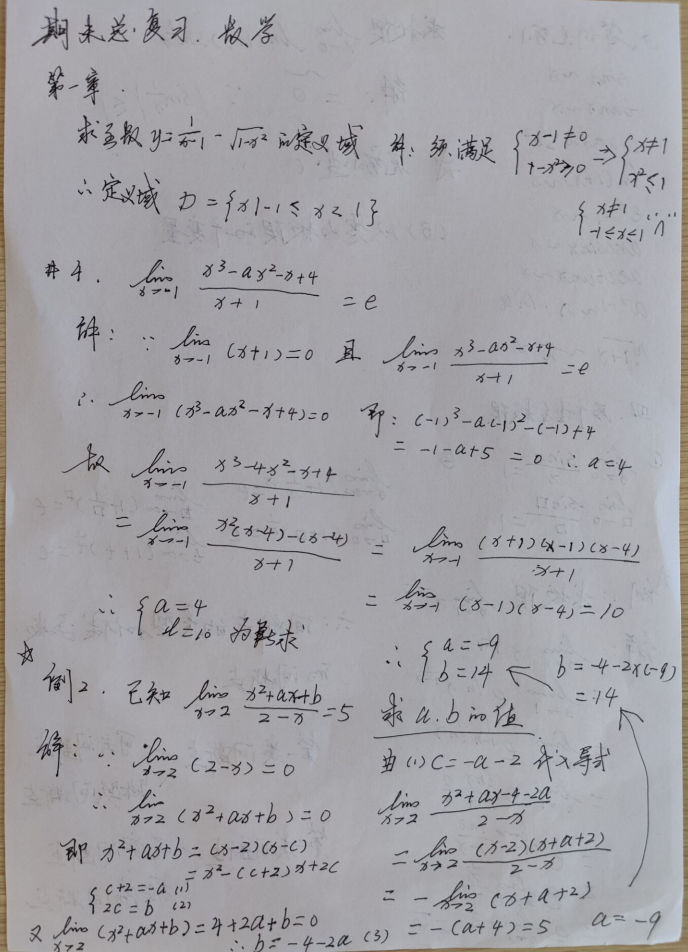 期末总复习. 数学
第一章.
求函数 y=1/(x-1) - √(1-x²) 的定义域 解: 须满足 {x-1≠0 1-x²≥0 ⇒ {x≠1 x²≤1
∴ 定义域 D = {x|-1≤x<1} {x≠1 -1≤x≤1
#4. lim x→-1 (x³-ax²-x+4)/(x+1) = e
解: ∵ lim x→-1 (x+1)=0 且 lim x→-1 (x³-ax²-x+4)/(x+1) = e
∴ lim x→-1 (x³-ax²-x+4)=0 即: (-1)³-a(-1)²-(-1)+4
= -1-a+5 = 0 ∴ a=4
故 lim x→-1 (x³-4x²-x+4)/(x+1)
= lim x→-1 (x²(x-4)-(x-4))/(x+1) = lim x→-1 (x+1)(x-1)(x-4)/(x+1)
= lim x→-1 (x-1)(x-4)=10
∴ {a=4 l=10 为所求
☆
例2. 已知 lim x→2 (x²+ax+b)/(2-x) = 5 求 a.b的值
解: ∵ lim x→2 (2-x)=0
∴ lim x→2 (x²+ax+b)=0
即 x²+ax+b=(x-2)(x-c)
=x²-(c+2)x+2c
{c+2=-a (1) 2c=b (2)
又 lim x→2 (x²+ax+b)=4+2a+b=0
∴ b=-4-2a (3)
由(1) C=-a-2 代入等式
lim x→2 (x²+ax-4-2a)/(2-x)
= lim x→2 (x-2)(x+a+2)/(2-x)
= - lim x→2 (x+a+2)
= -(a+4)=5 a=-9
b=-4-2×(-9)
=14
∴ {a=-9 b=14